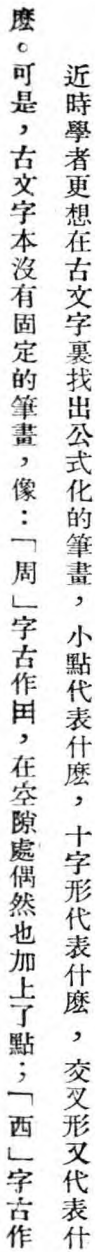 近時學者更想在古文字裏找出公式化的筆畫，小點代表什麽，十字形代表什麽，交叉形又代表什
麽。可是，古文字本沒有固定的筆畫，像：「周」字古作田，在空隙處偶然也加上了點；「西」字古作